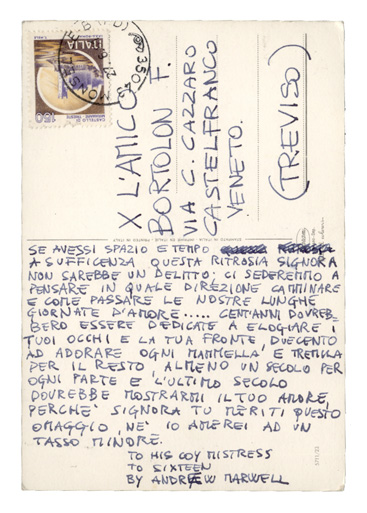 X L'AMICO
BORTOLON F.
VIA C. CAZZARO
CASTELFRANCO
VENETO.
(TREVISO)
ITALIA
150
CASTELLO DI
MIRAMARE TRIESTE
35043
SE AVESSI SPAZIO E TEMPO
A SUFFICENZA QUESTA RITROSIA SIGNORA
NON SAREBBE UN DELITTO; CI SEDEREMMO A
PENSARE IN QUALE DIREZIONE CAMMINARE
E COME PASSARE LE NOSTRE LUNGHE
GIORNATE D'AMORE..... CENT'ANNI DOVREB-
BERO ESSERE DEDICATE A ELOGIARE I
TUOI OCCHI E LA TUA FRONTE, DUECENTO
AD ADORARE OGNI MAMMELLA E TREMILA
PER IL RESTO, ALMENO UN SECOLO PER
OGNI PARTE E L'ULTIMO SECOLO
DOVREBBE MOSTRARMI IL TUO AMORE,
PERCHE' SIGNORA TU MERITI QUESTO
OMAGGIO, NE' IO AMEREI AD UN
TASSO MINORE.
TO HIS COY MISTRESS
TO SIXTEEN
BY ANDREW MARWELL